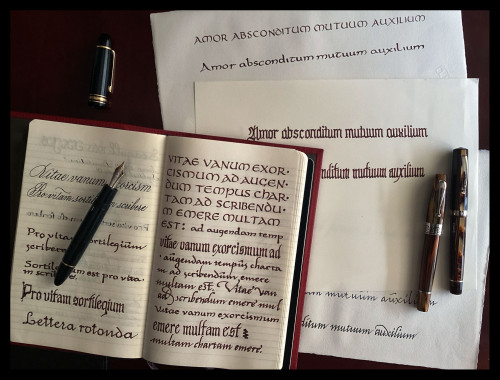 AMOR ABSCONDITUM MUTUUM AUXILIUM
Amor absconditum mutuum auxilium
Amor absconditum mutuum auxilium
mutuum auxilium
mutuum auxilium
mutuum auxilium
Vitae vanum exorcism
Pro vitam sortil scribere
Pro vitam sortilegium
scribere
Sortil est pro vita
m scribere.
Pro vitam sortilegium
Lettera rotonda
VITAE VANUM EXOR-
CISMUM AD AUGEN-
DUM TEMPUS CHAR-
TAM AD SCRIBENDU-
M EMERE MULTAM
EST: ad augendam temp
vitae vanum exorcismum ad
augendam tempus charta
m ad scribendum emere
multam est. Vitae van
ad scribendum emere mul
vitae vanum exorcismum
emere multam est
multam chartam emere.